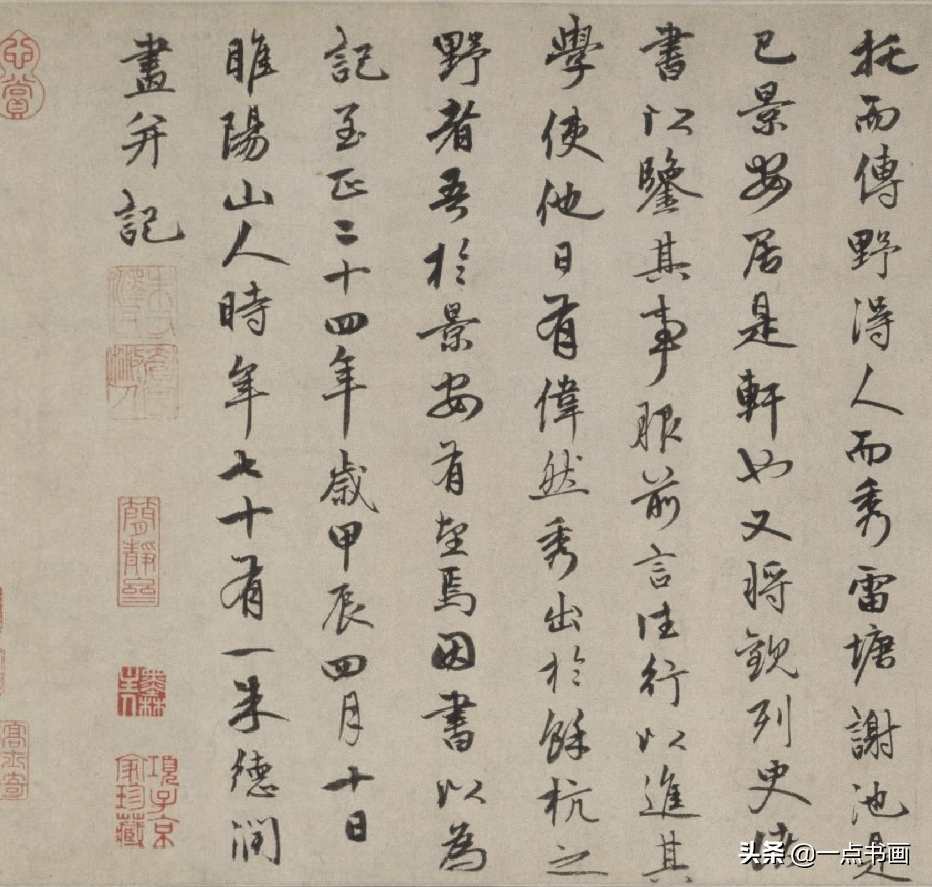 托而傳野得人而秀雷塘謝池是
已景安居是軒也又將歌列史
書以鑒其事服前言往行以進其
學使他日有偉然秀出於餘杭之
野者吾於景安有望焉因書以為
記至正二十四年歲甲辰四月十日
睢陽山人時年七十有一朱德潤
畫并記
簡靜
項子京家珍藏
頭条 @一点书画